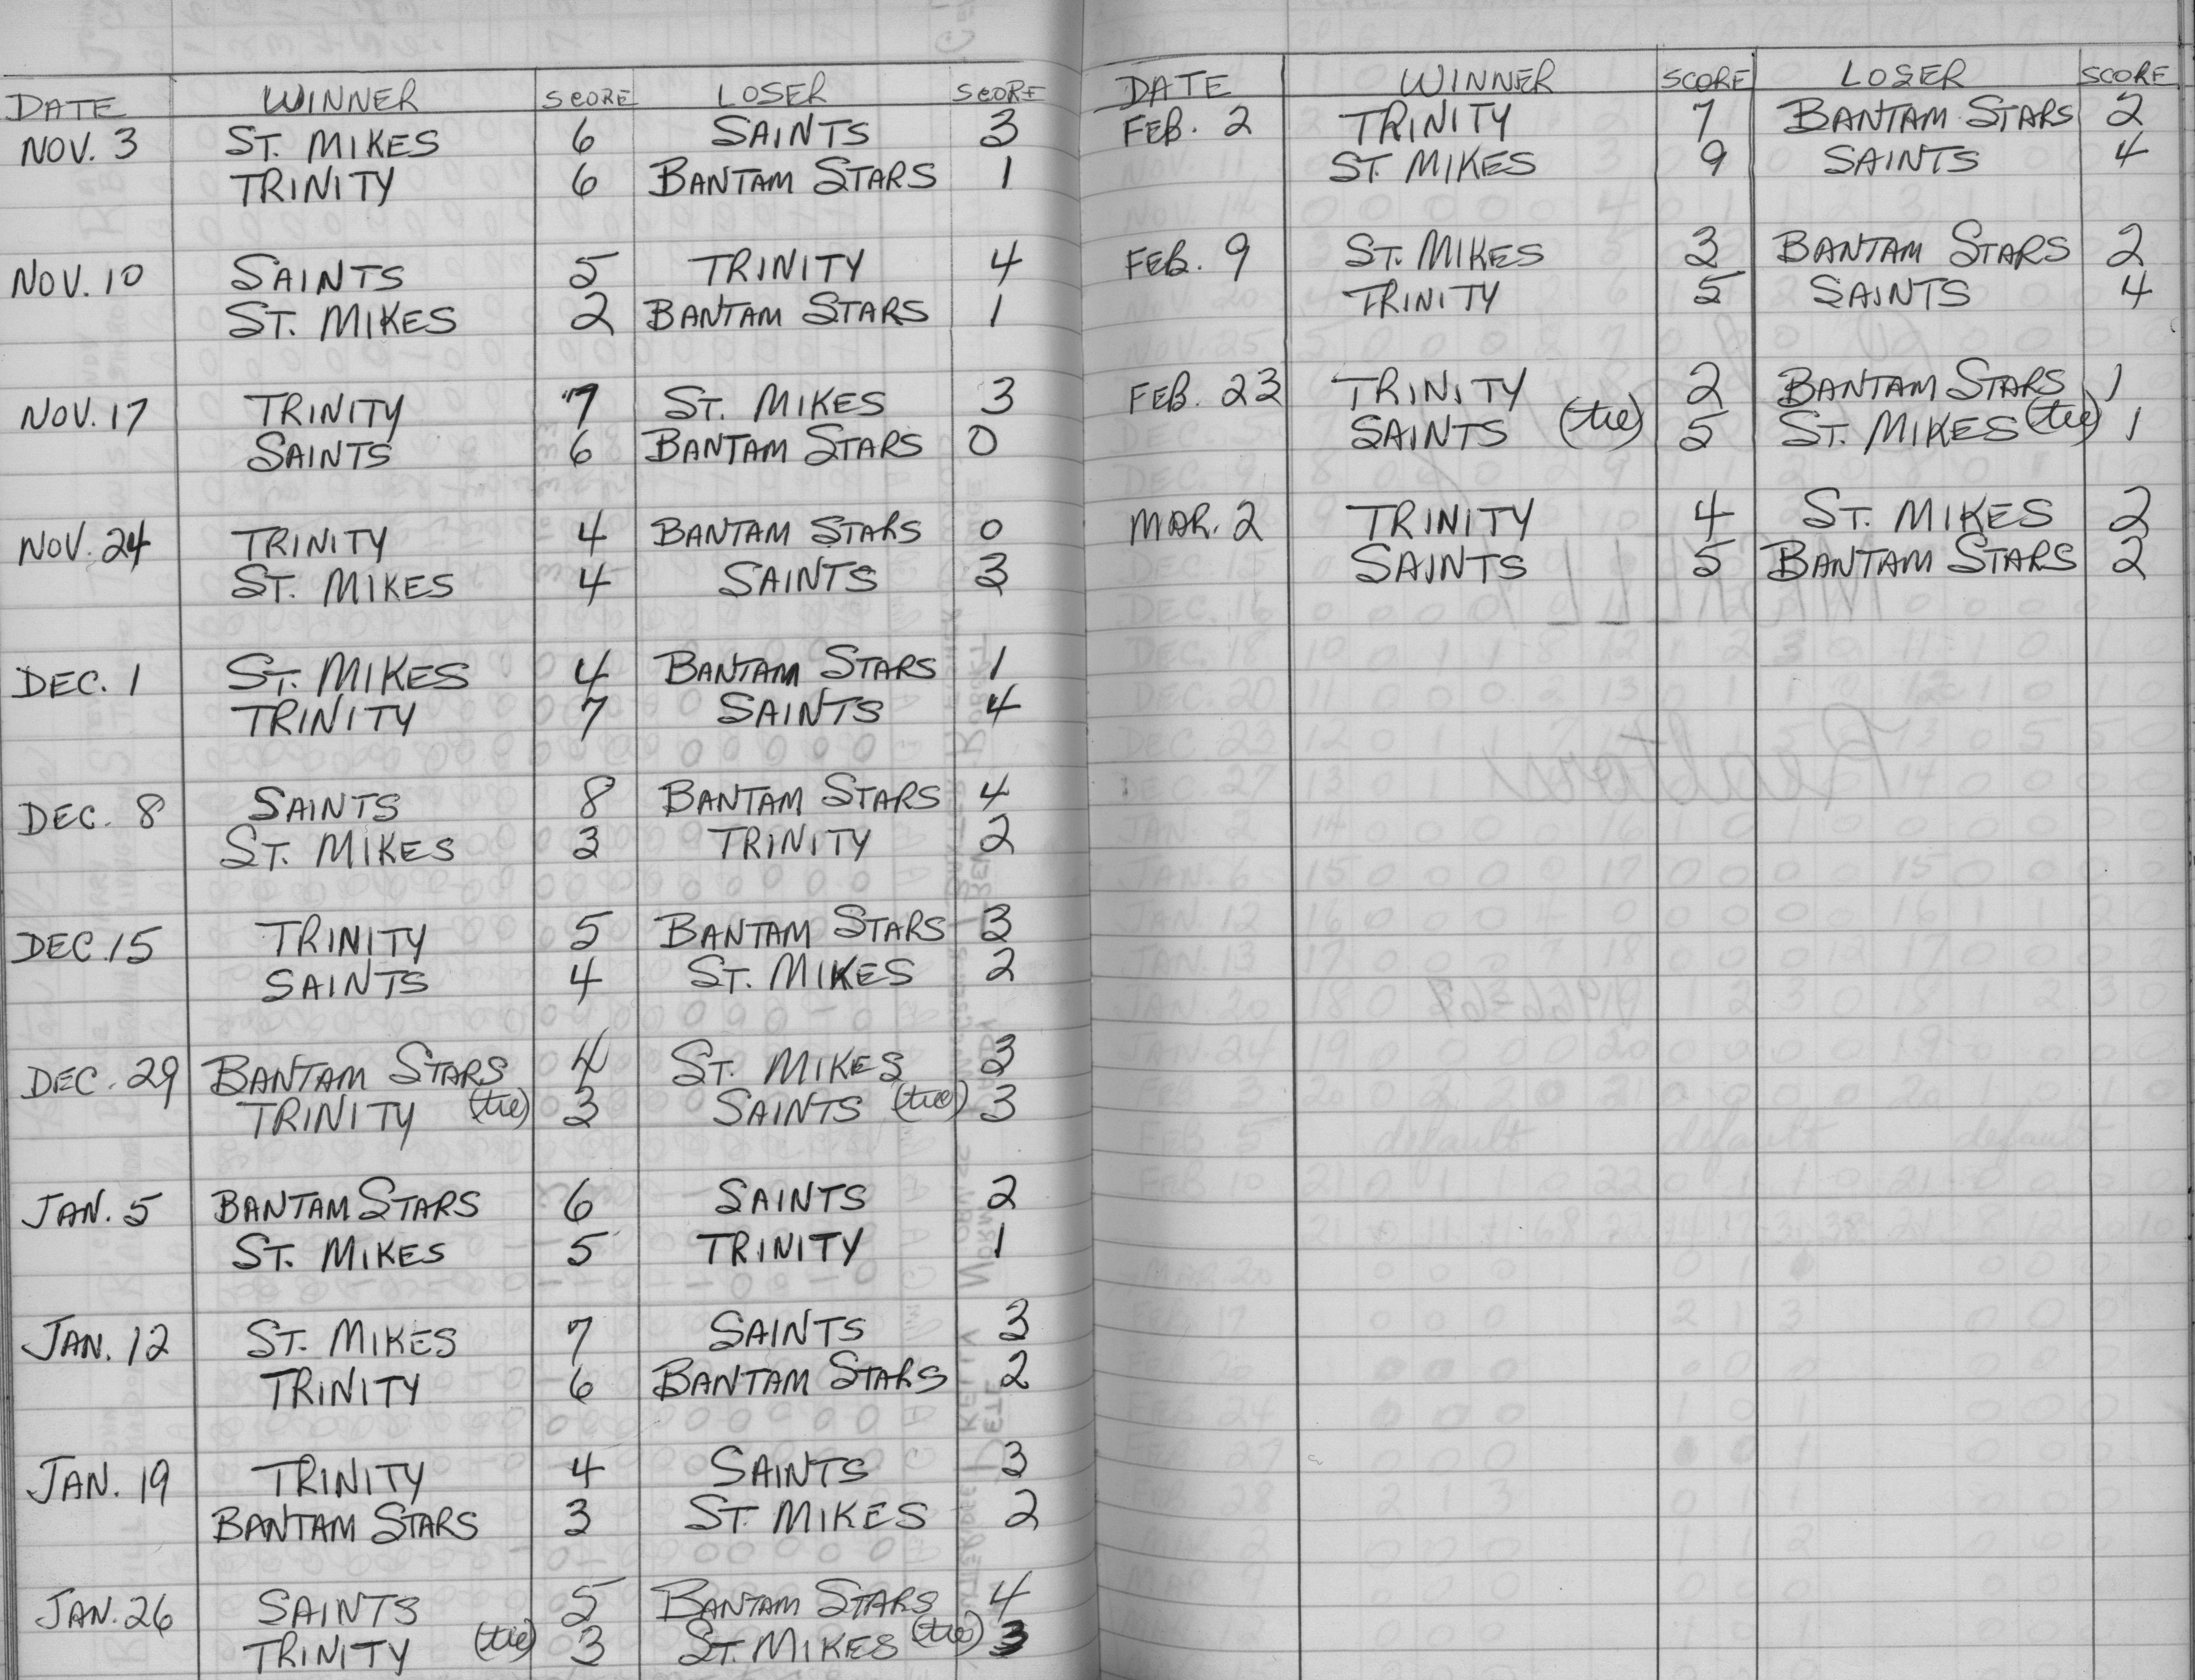 DATE WINNER SCORE LOSER SCORE
NOV. 3 ST. MIKES 6 SAINTS 3
TRINITY 6 BANTAM STARS 1
NOV. 10 SAINTS 5 TRINITY 4
ST. MIKES 2 BANTAM STARS 1
NOV. 17 TRINITY 7 ST. MIKES 3
SAINTS 6 BANTAM STARS 0
NOV. 24 TRINITY 4 BANTAM STARS 0
ST. MIKES 4 SAINTS 3
DEC. 1 ST. MIKES 4 BANTAM STARS 1
TRINITY 7 SAINTS 4
DEC. 8 SAINTS 8 BANTAM STARS 4
ST. MIKES 3 TRINITY 2
DEC. 15 TRINITY 5 BANTAM STARS 3
SAINTS 4 ST. MIKES 2
DEC. 29 BANTAM STARS 4 ST. MIKES 3
TRINITY (tie) 3 SAINTS (tie) 3
JAN. 5 BANTAM STARS 6 SAINTS 2
ST. MIKES 5 TRINITY 1
JAN. 12 ST. MIKES 7 SAINTS 3
TRINITY 6 BANTAM STARS 2
JAN. 19 TRINITY 4 SAINTS 3
BANTAM STARS 3 ST. MIKES 2
JAN. 26 SAINTS 5 BANTAM STARS 4
TRINITY (tie) 3 ST. MIKES (tie) 3
DATE WINNER SCORE LOSER SCORE
FEB. 2 TRINITY 7 BANTAM STARS 2
ST. MIKES 9 SAINTS 4
FEB. 9 ST. MIKES 3 BANTAM STARS 2
TRINITY 5 SAINTS 4
FEB. 23 TRINITY 2 BANTAM STARS 1
SAINTS (tie) 5 ST. MIKES (tie) 1
MAR. 2 TRINITY 4 ST. MIKES 2
SAINTS 5 BANTAM STARS 2